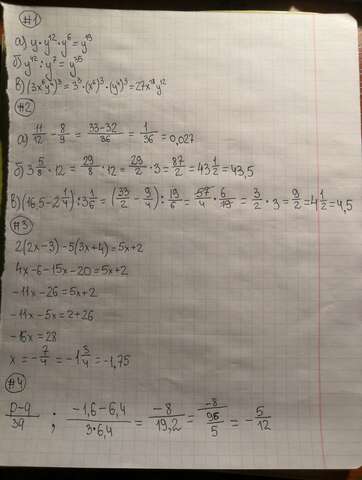 #1
а) y·y¹²·y⁶=y¹⁹
б) y⁴²:y⁷=y³⁵
в) (3x⁶y⁴)³=3³·(x⁶)³·(y⁴)³=27x¹⁸y¹²
#2
а) 11/12-8/9=33-32/36=1/36=0,027
б) 3 5/8·12=29/8·12=29/2·3=87/2=43 1/2=43,5
в) (16,5-2 1/4):3 1/6=(33/2-9/4):19/6=57/4·6/19=3/2·3=9/2=4 1/2=4,5
#3
2(2x-3)-5(3x+4)=5x+2
4x-6-15x-20=5x+2
-11x-26=5x+2
-11x-5x=2+26
-16x=28
x=-7/4=-1 3/4=-1,75
#4
p-q/3q ; -1,6-6,4/3·6,4=-8/19,2=-8/96/5=-5/12